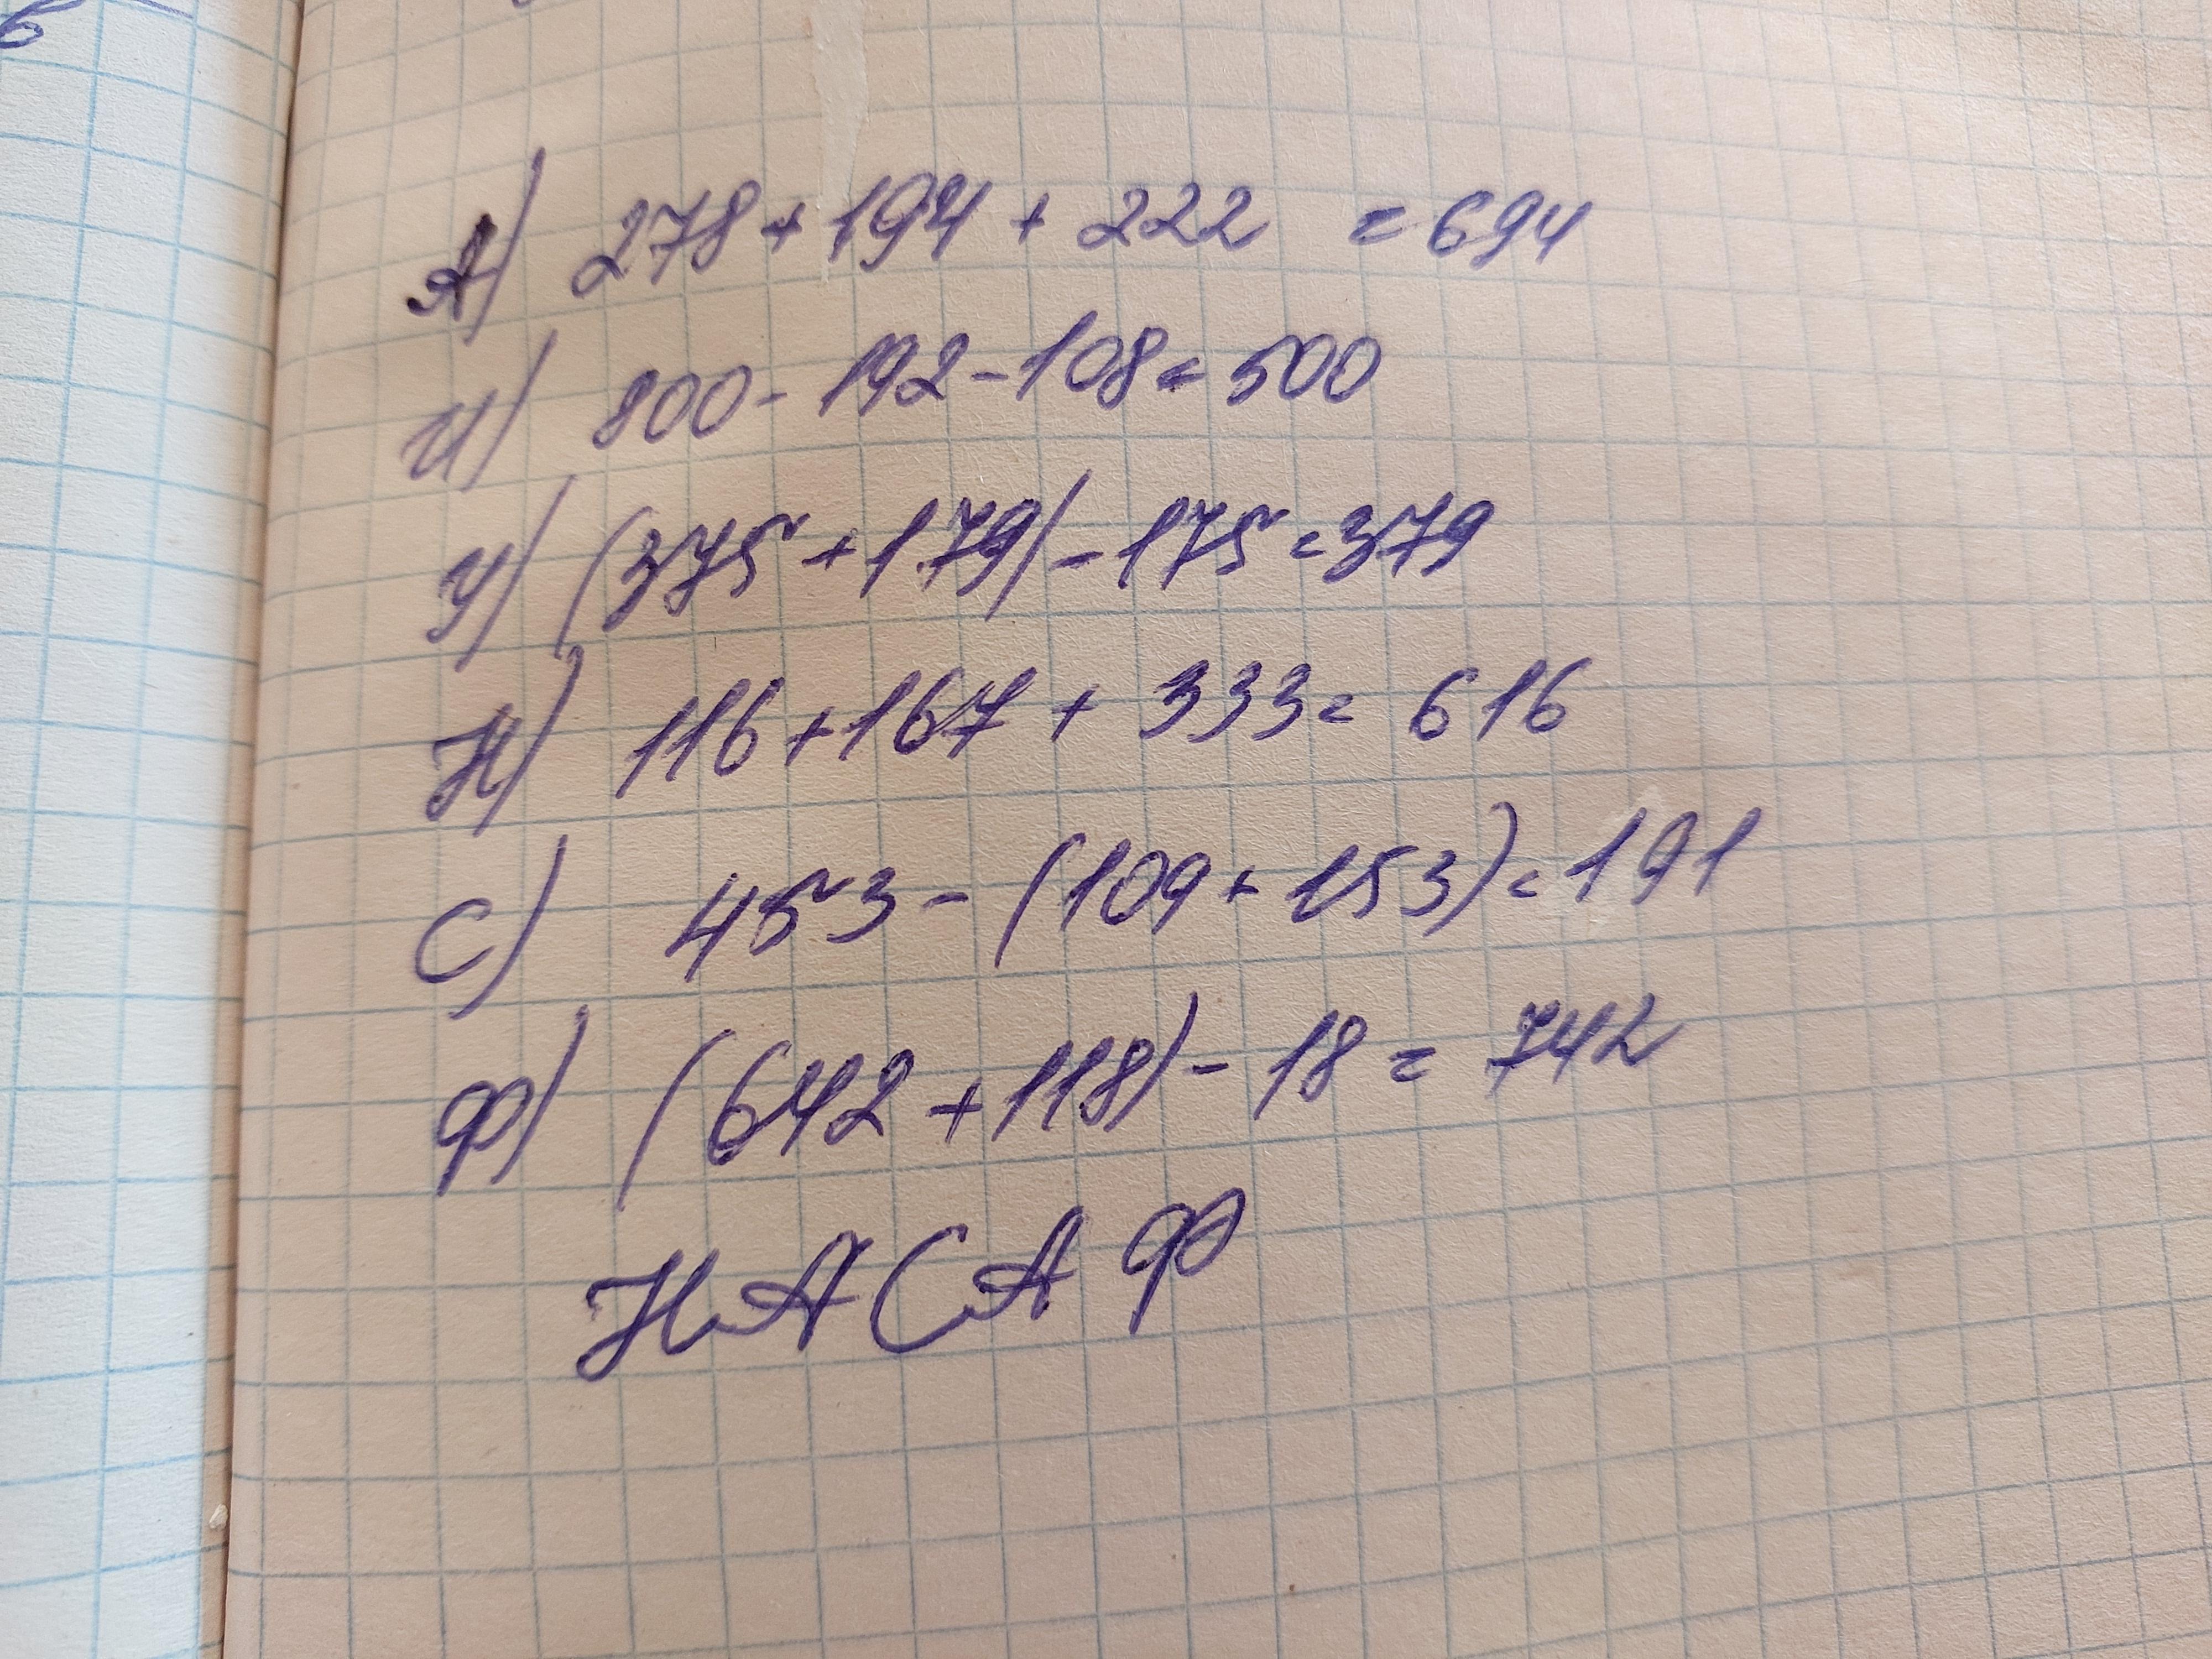 А) 278 + 194 + 222 = 694
И) 800 - 192 - 108 = 500
У) (375 + 179) - 175 = 379
Н) 116 + 167 + 333 = 616
С) 453 - (109 + 153) = 191
Ф) (642 + 118) - 18 = 742
НАСАФ